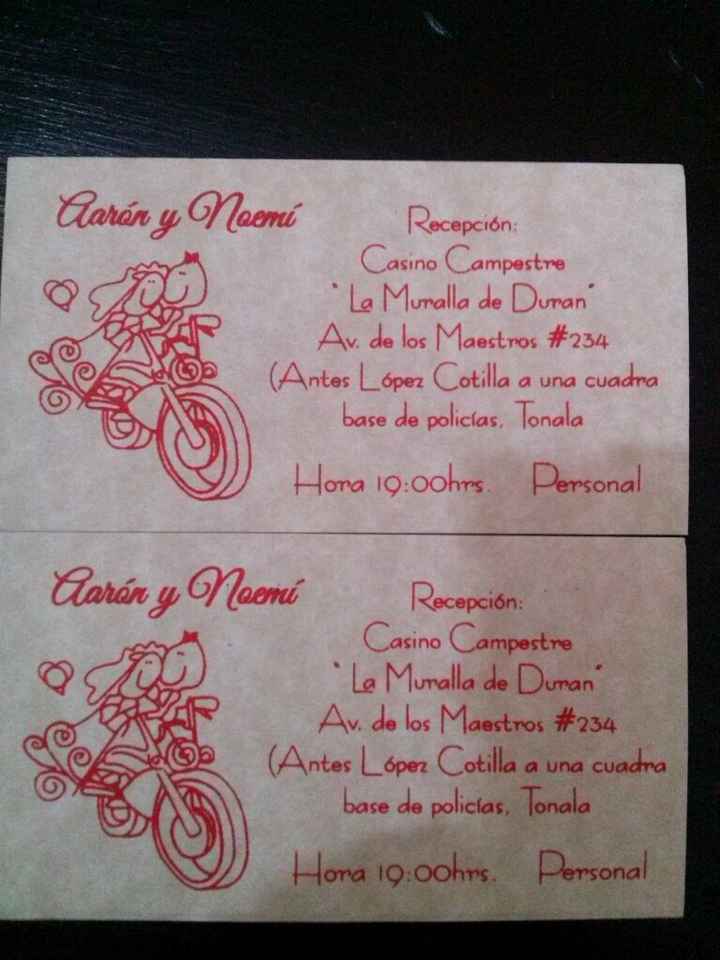 Aarón y Noemí
Recepción:
Casino Campestre
"La Muralla de Duran"
Av. de los Maestros #234
(Antes López Cotilla a una cuadra
base de policías, Tonala
Hora 19:00hrs. Personal
Aarón y Noemí
Recepción:
Casino Campestre
"La Muralla de Duran"
Av. de los Maestros #234
(Antes López Cotilla a una cuadra
base de policías, Tonala
Hora 19:00hrs. Personal